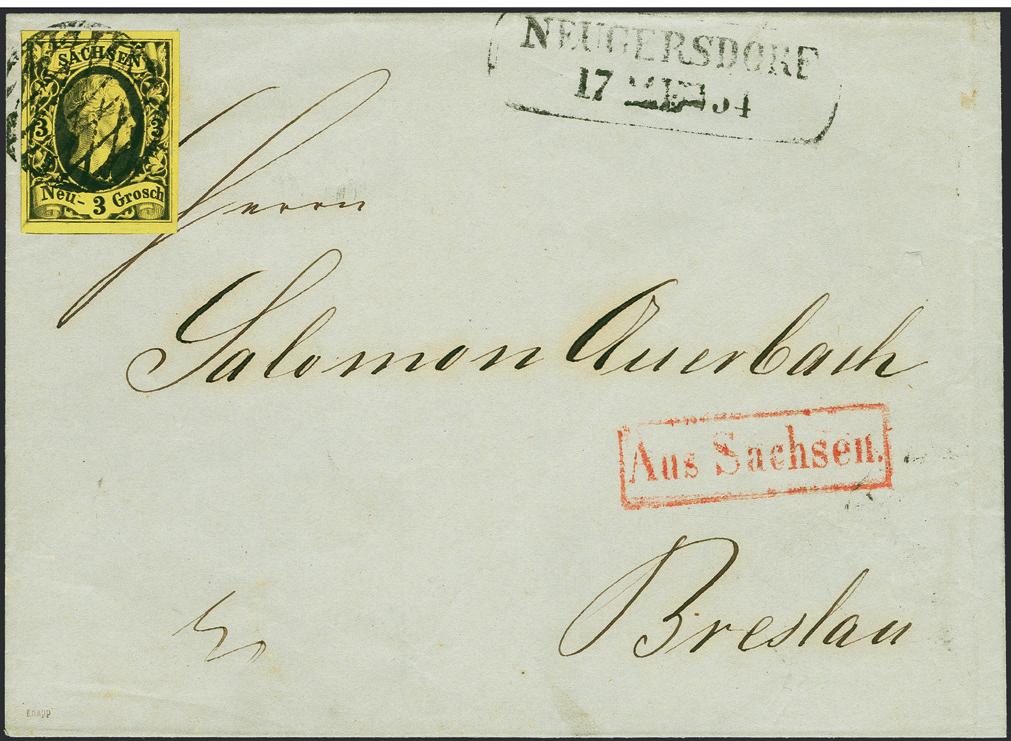 SACHSEN
3 3
Neu- 3 Grosch
NEUGERSDORF
17 54
Herrn
Salomon Auerbach
Aus Sachsen.
Breslau